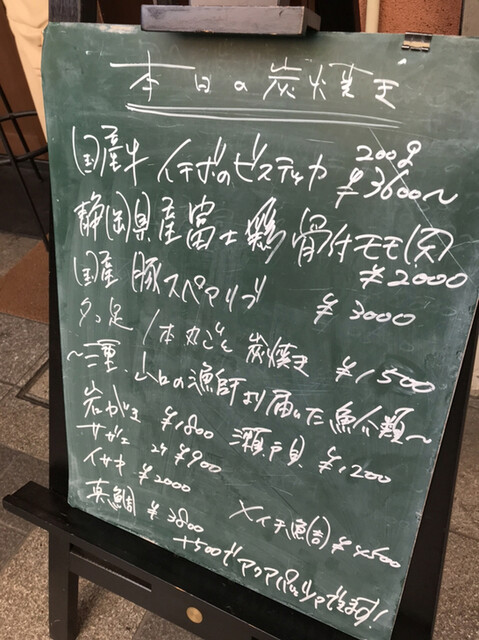 本日の炭焼き
国産牛 イチボのビステッカ 200g ¥3600〜
静岡県産富士鶏 骨付モモ(肉) ¥2000
国産 豚スペアリブ ¥3000
タコ足 1本丸ごと 炭焼き ¥1500
〜三重、山口の漁師より届いた魚介類〜
岩がき ¥1800 瀬戸貝 ¥1200
サザエ 2ケ ¥900
イサキ ¥2000
真鯛 ¥3800 メイチ鯛 ¥4500
+500でアクアパッツァできます!